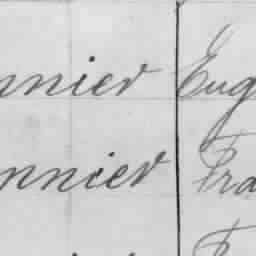 nnier Eug
nnier Fra